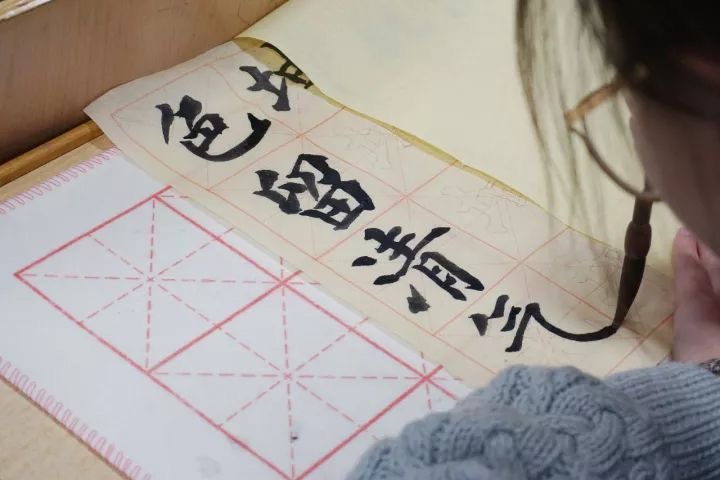 色留清气